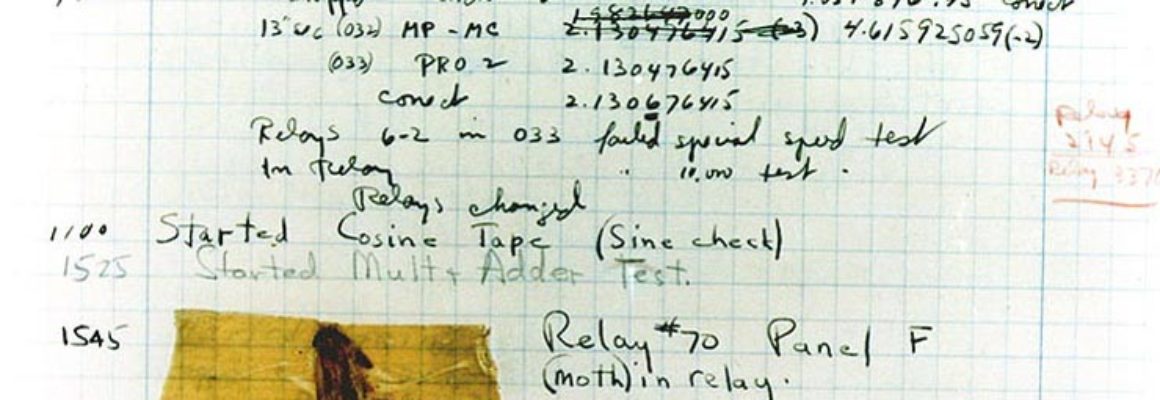 13"uc (032) MP - MC 2.130476415 (-3) 4.615925059(-2)
(033) PRO 2 2.130476415
conect 2.130676415
Relays 6-2 in 033 failed special speed test
In Relay " 10,000 test .
Relays changed
1100 Started Cosine Tape (Sine check)
1525 Started Mult+ Adder Test.
1545 Relay #70 Panel F
(moth) in relay.
Relay
2145
Relay 3370